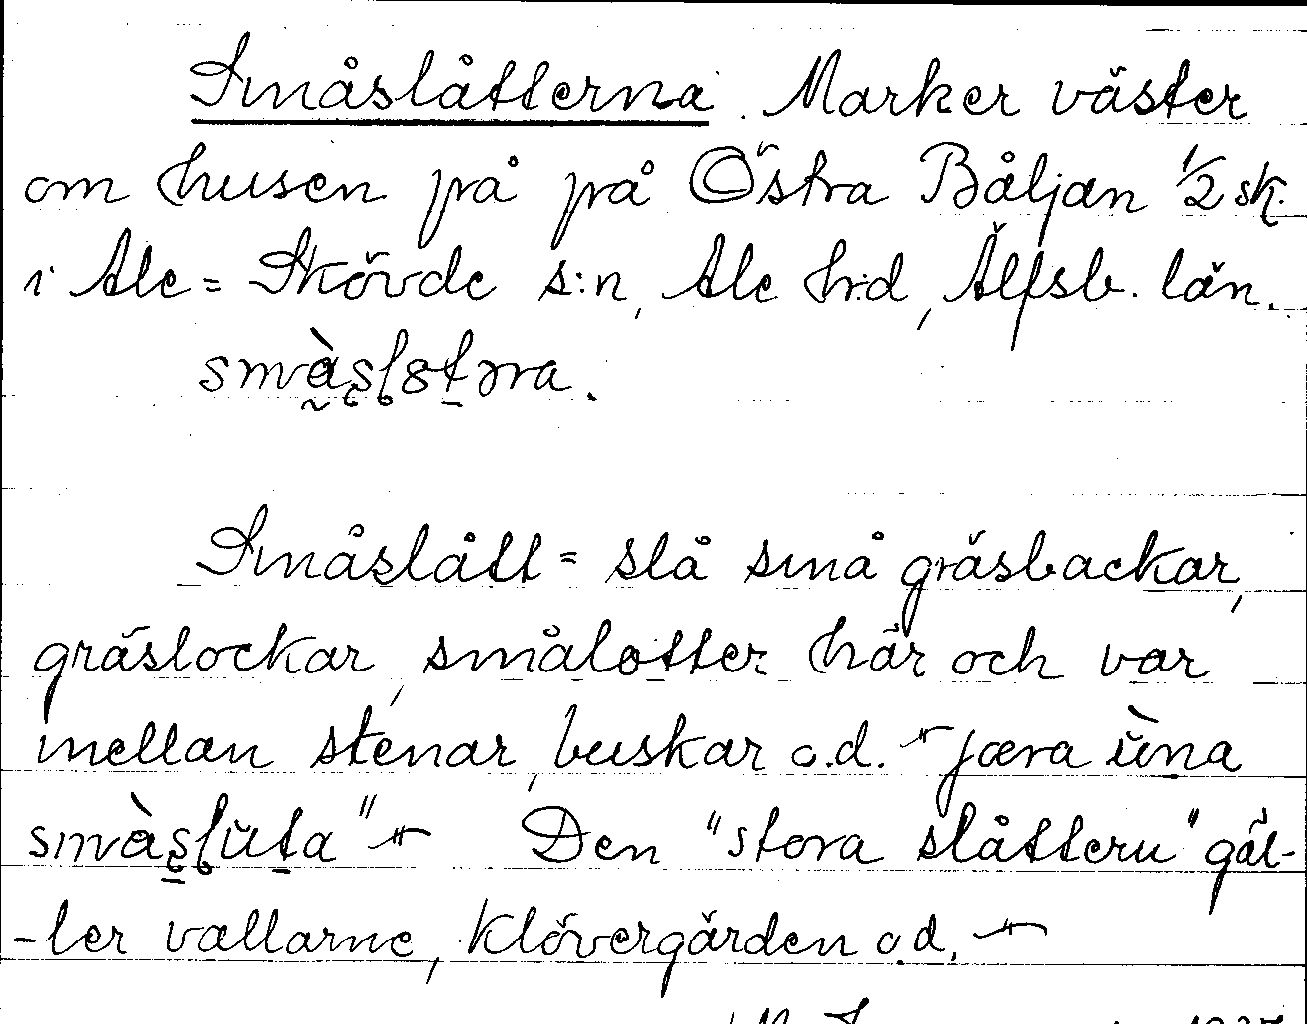 Småslåtterna. Marker väster
om husen på på Östra Båljan 1/2 sk.
i Ale = Skövde s:n, Ale h:d, Älfsb. län.
Småslått = slå små gräsbackar,
gräslockar, smålotter här och var
mellan stenar, buskar o.d. jæra ùna
Den "stora slåttern" gäl-
-ler vallarne, klövergärden o.d.